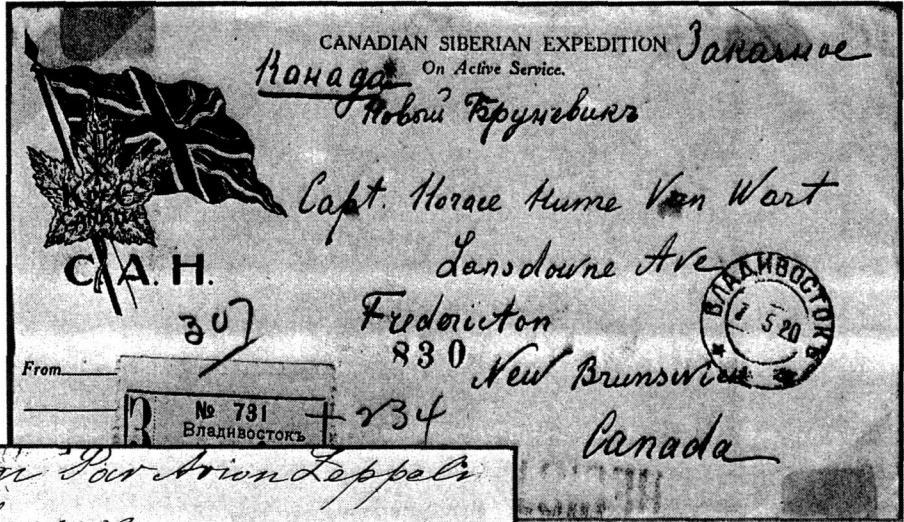 CANADIAN SIBERIAN EXPEDITION
On Active Service.
Заказное
Канада
Новый Бруневикъ
Capt. Horace Hume Van Wart
Lansdowne Ave
Fredericton
New Brunswick
Canada
CANADA
C. A. H.
307
830
From
ВЛАДИВОСТОКЪ
5 20
З
№ 731
Владивостокъ
234
Par Avion Zeppelin